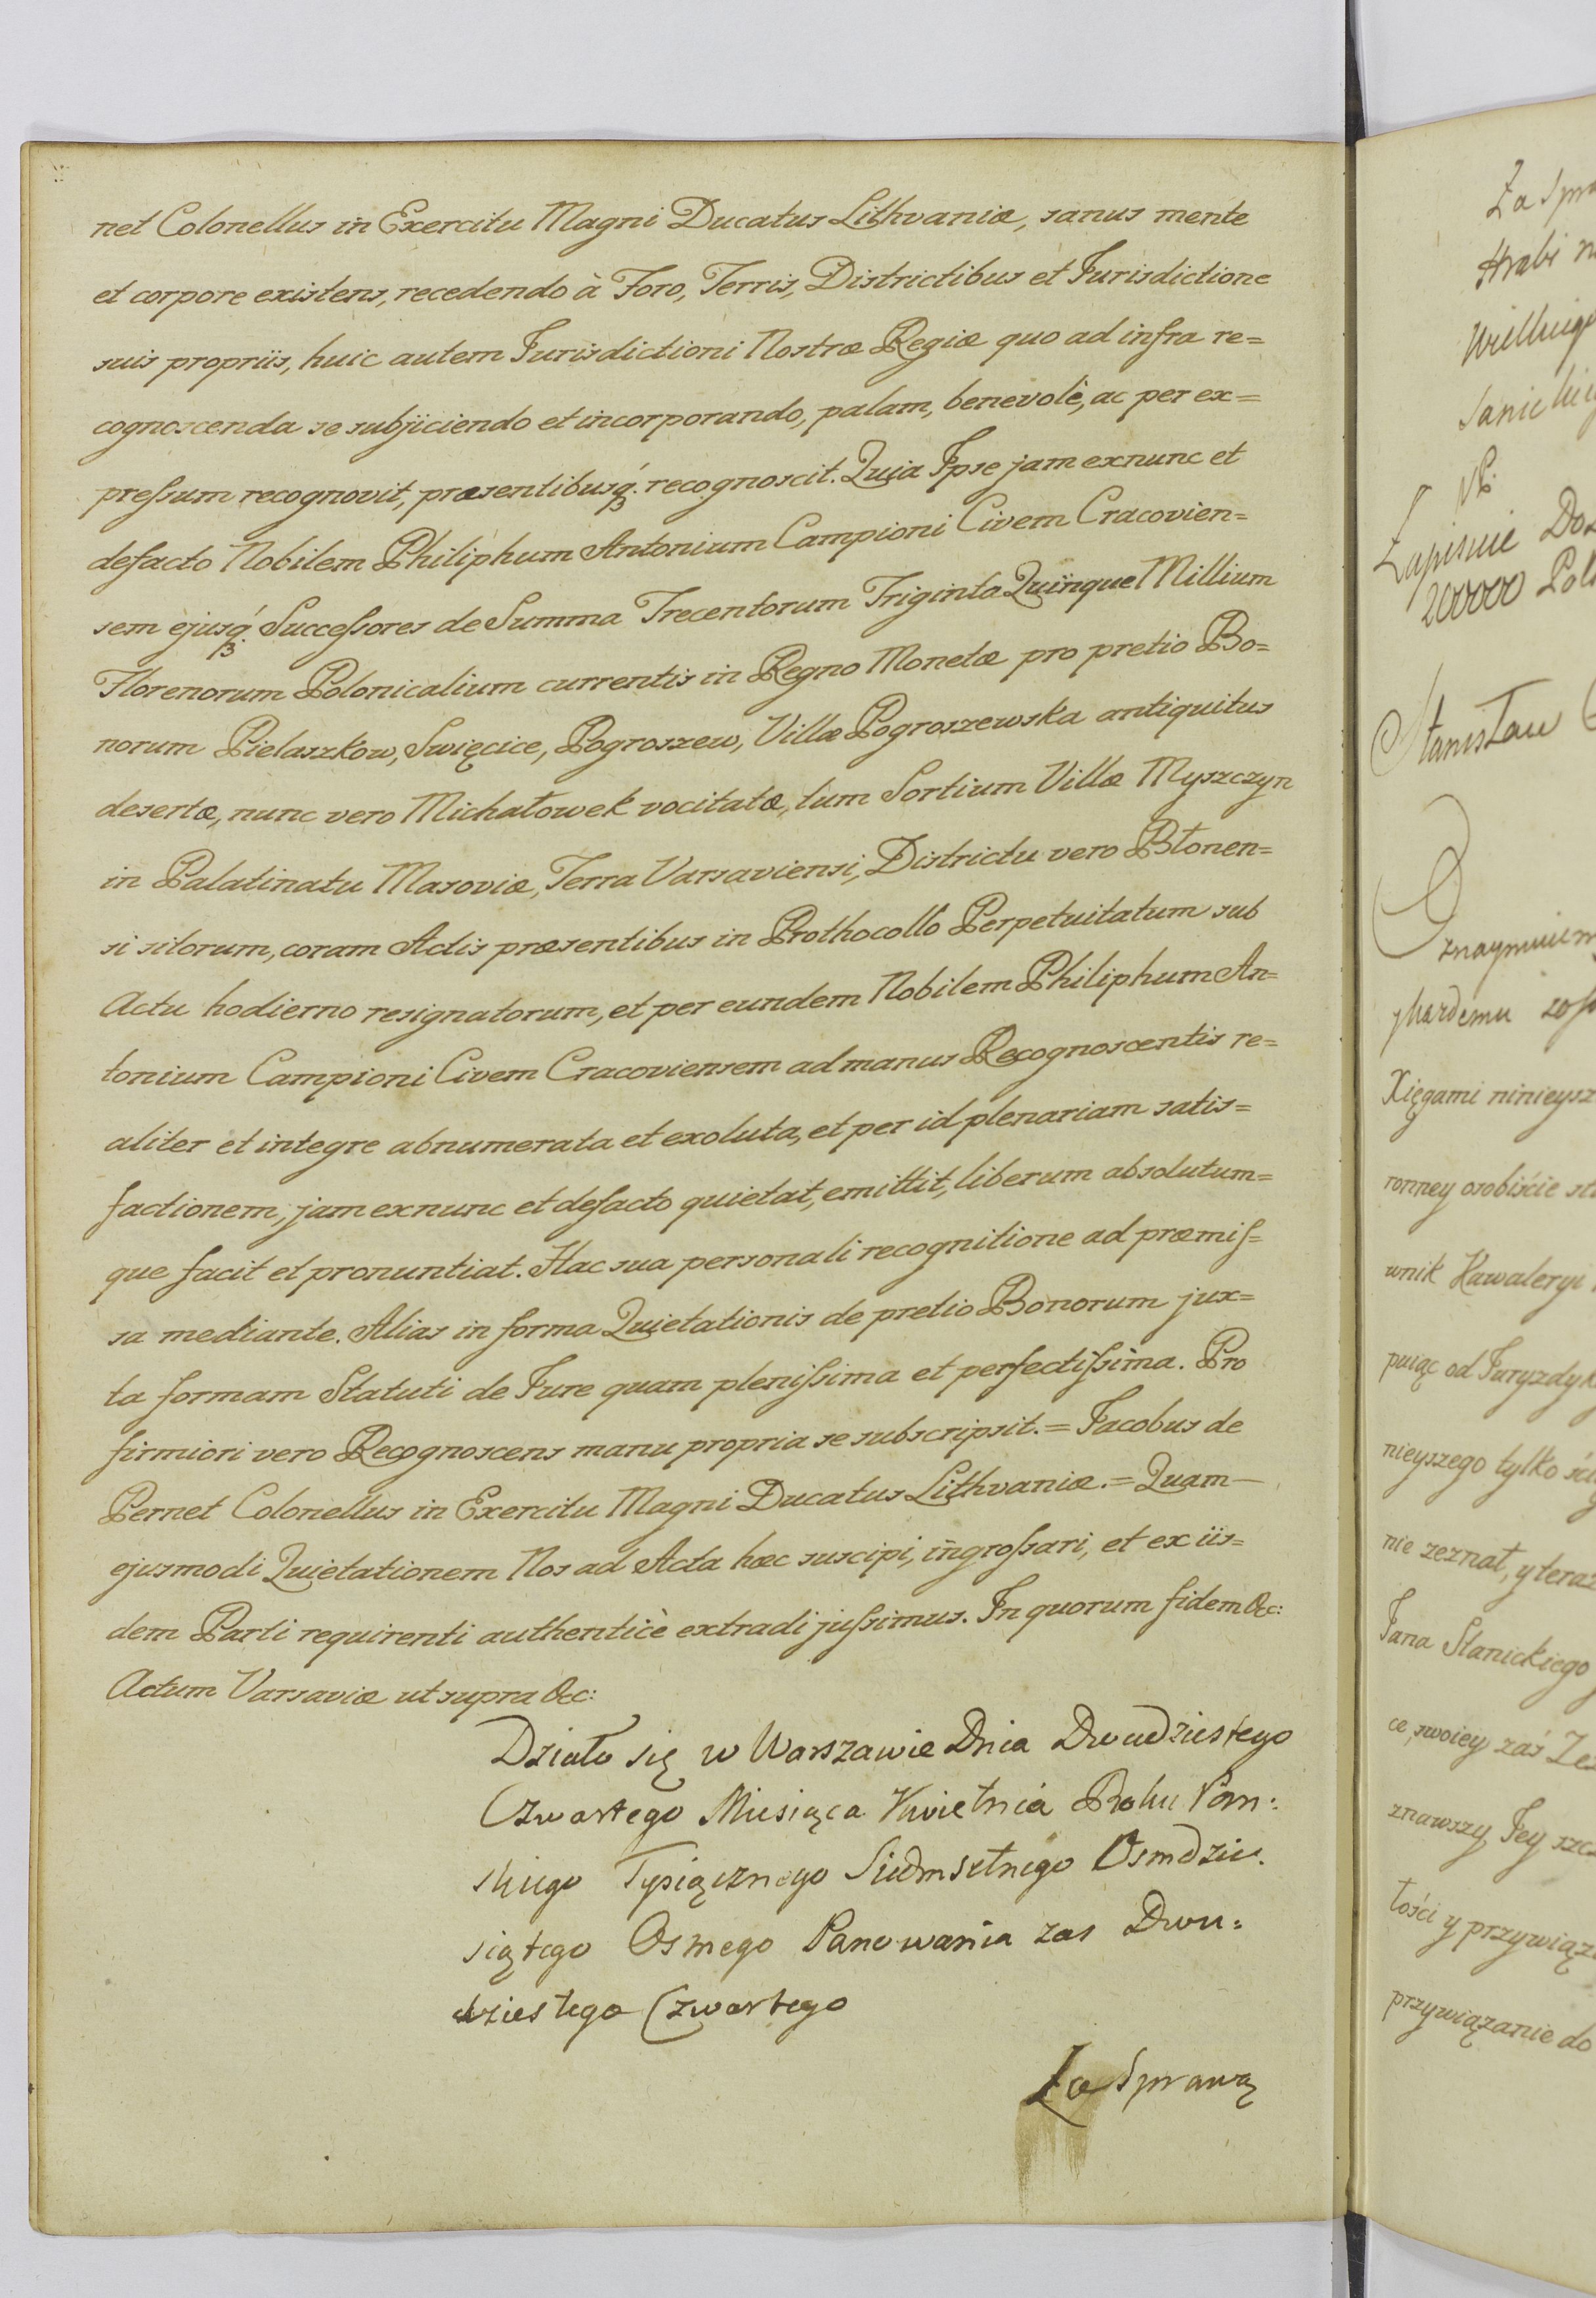 net Colonellus in Exercitu Magni Ducatus Lithvaniæ, sanus mente
et corpore existens, recedendo à Foro, Terris, Districtibus et Jurisdictione
suis propriis, huic autem Jurisdictioni Nostræ Regiæ quo ad infra re=
cognoscenda se subjiciendo et incorporando, palam, benevolè, ac per ex=
pressum recognovit, præsentibusq́. recognoscit. Quia Ipse jam exnunc et
defacto Nobilem Philiphum Antonium Campioni Civem Cracovien=
sem ejusq́. Successores de Summa Trecentorum Triginta Quinque Millium
Florenorum Polonicalium currentis in Regno Monetæ pro pretio Bo=
norum Pielaszkow, Swięcice, Pogroszew, Villæ Pogroszewska antiquitus
desertæ, nunc vero Michałowek vocitatæ, tum Sortium Villæ Myszczyn
in Palatinatu Masoviæ, Terra Varsaviensi, Districtu vero Błonen=
si sitorum, coram Actis præsentibus in Prothocollo Perpetuitatum sub
Actu hodierno resignatorum, et per eundem Nobilem Philiphum An=
tonium Campioni Civem Cracoviensem ad manus Recognoscentis re=
aliter et integre abnumerata et exoluta, et per id plenariam satis=
factionem, jam exnunc et defacto quietat, emittit, liberum absolutum=
que facit et pronuntiat. Hac sua personali recognitione ad præmis=
sa mediante. Alias in forma Quietationis de pretio Bonorum jux=
ta formam Statuti de Jure quam plenissima et perfectissima. Pro
firmiori vero Recognoscens manu propria se subscripsit. = Jacobus de
Pernet Colonellus in Exercitu Magni Ducatus Lithvaniæ. = Quam—
ejusmodi Quietationem Nos ad Acta hæc suscipi, ingrossari, et ex iis=
dem Parti requirenti authenticè extradi jussimus. In quorum fidem &c:
Actum Varsaviæ ut supra &c:
Działo się w Warszawie Dnia Dwudziestego
Czwartego Miesiąca Kwietnia Roku Pan:
skiego Tysiącznego Siedmsetnego Osmdzie:
siątego Osmego Panowania zas Dwu:
dziestego Czwartego
Za Sprawą
Za Spra
Hrabi
Wielkiego
NB.
Zapisuie Do
200000 Pol
Stanisław
Oznaymuiem
Xięgami ninieysz
ronney osobiście st
wnik Kawaleryi
puiąc od Juryzdyk
nieyszego tylko ści
nie zeznał, y teraz
Jana Stanickiego
ce, swoiey zaś Ze
znawszy Jey szcz
łości y przywiąz
przywiązanie do